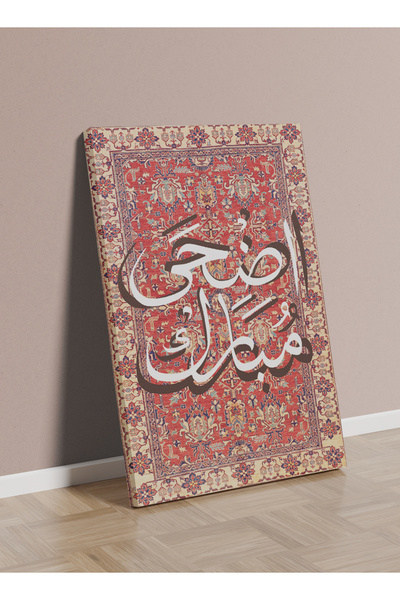 اضحَى
مُبَارك